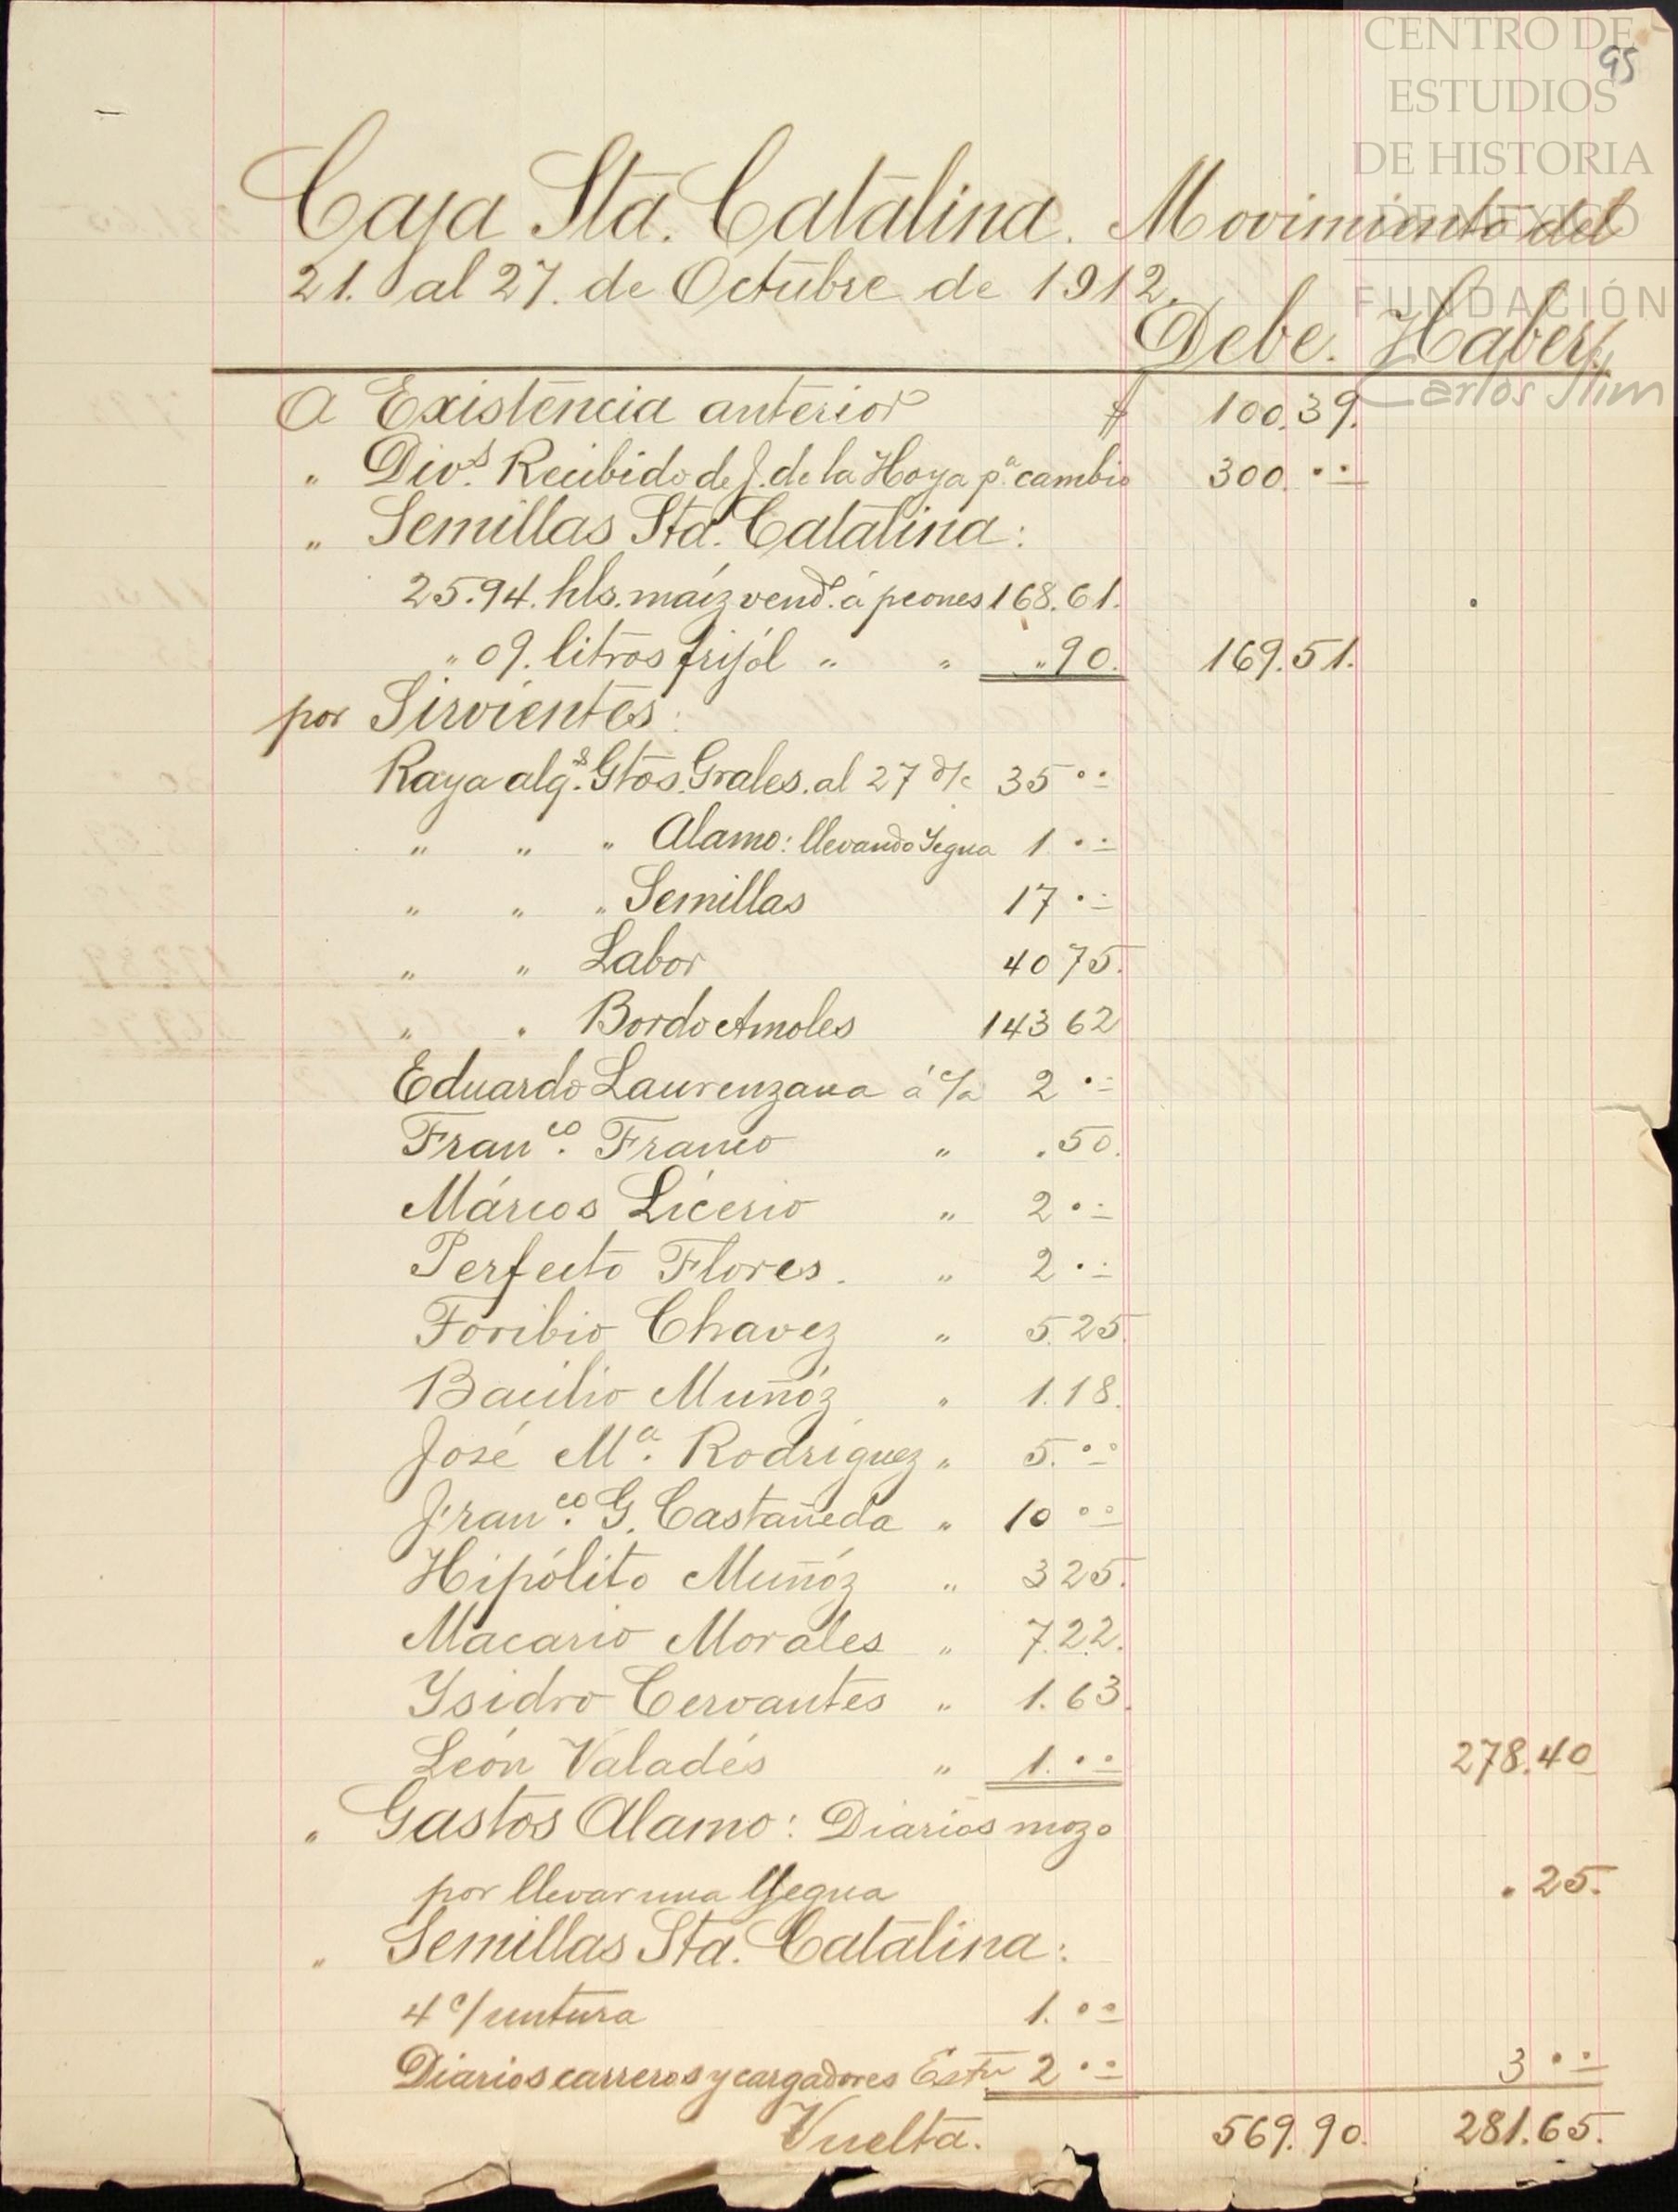 CENTRO DE
ESTUDIOS
DE HISTORIA
DE MÉXICO
FUNDACIÓN
Carlos Slim
95
Caja Sta. Catalina. Movimiento del
21. al 27. de Octubre de 1912.
Debe. Haber.
A Existencia anterior $ 100.39.
" Divs. Recibido de J. de la Hoya pa. cambio 300. ..
" Semillas Sta. Catalina:
25.94. hls. maíz vendo. á peones 168.61.
" 09. litros frijól " " " 90. 169.51.
por Sirvientes:
Raya algs. Gtos. Grales. al 27 d/c 35 ..
" " " Alamo: llevando Yegua 1 ..
" " " Semillas 17 ..
" " Labor 40 75.
" " Bordo Amoles 143 62
Eduardo Laurenzana á c/a 2 ..
Franco. Franco " .50.
Márcos Licerio " 2 ..
Perfecto Flores. " 2 ..
Toribio Chavez " 5.25.
Bacilio Muñóz " 1.18.
José Ma. Rodriguez " 5. ..
Franco. G. Castañeda " 10 ..
Hipólito Muñóz " 3 25.
Macario Morales " 7.22.
Ysidro Cervantes " 1.63.
León Valadés " 1. .. 278.40
" Gastos Alamo: Diarios mozo
por llevar una Yegua .25.
" Semillas Sta. Catalina:
4 c/ untura 1. ..
Diarios carreros y cargadores Estn 2 .. 3 ..
Vuelta. 569.90. 281.65.